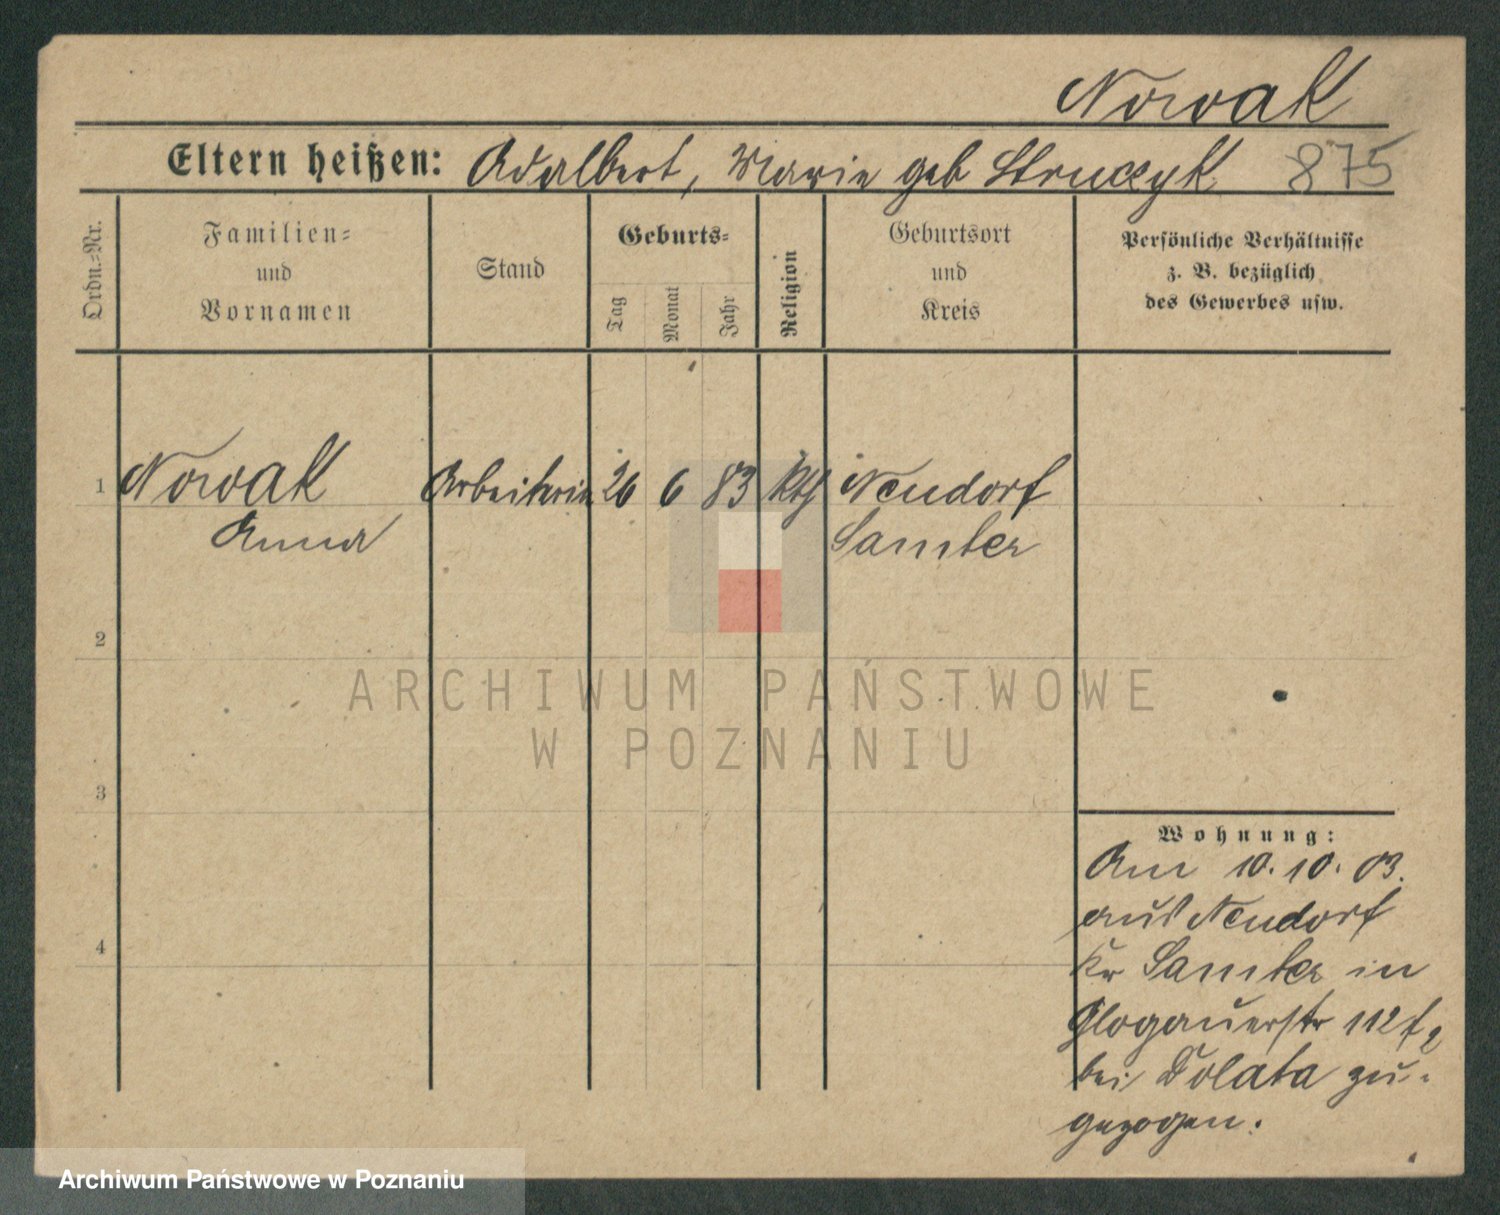 Nowak
Eltern heißen: Adalbert, Marie geb Struczyk 875
Ordn.-Nr.
Familien-
und
Vornamen
Stand
Geburts-
Tag
Monat
Jahr
Religion
Geburtsort
und
Kreis
Persönliche Verhältnisse
z. B. bezüglich
des Gewerbes usw.
1 Nowak Arbeiterin 26 6 83 kth Neudorf
Anna Samter
2
ARCHIWUM PAŃSTWOWE
W POZNANIU
3
Wohnung:
Am 10. 10. 03.
aus Neudorf
4
Kr Samter in
Glogauerstr 112
bei Dolata zu-
gezogen.
Archiwum Państwowe w Poznaniu